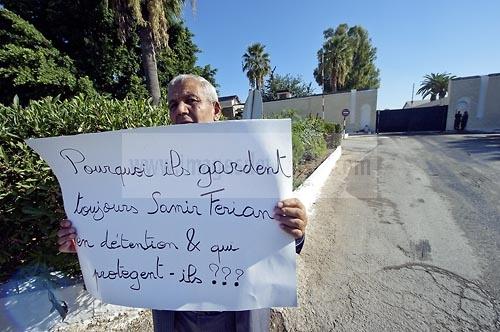 Pourquoi ils gardent
toujours Samir Ferian
en détention & qui
protègent-ils ???